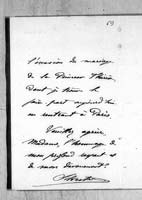 59
l'occasion du mariage
de la Princesse
dont je trouve le
faire part aujourd'hui
en rentrant à Paris.
Veuillez agréer,
Madame, l'hommage de
mon profond respect et
de mon dévouement.